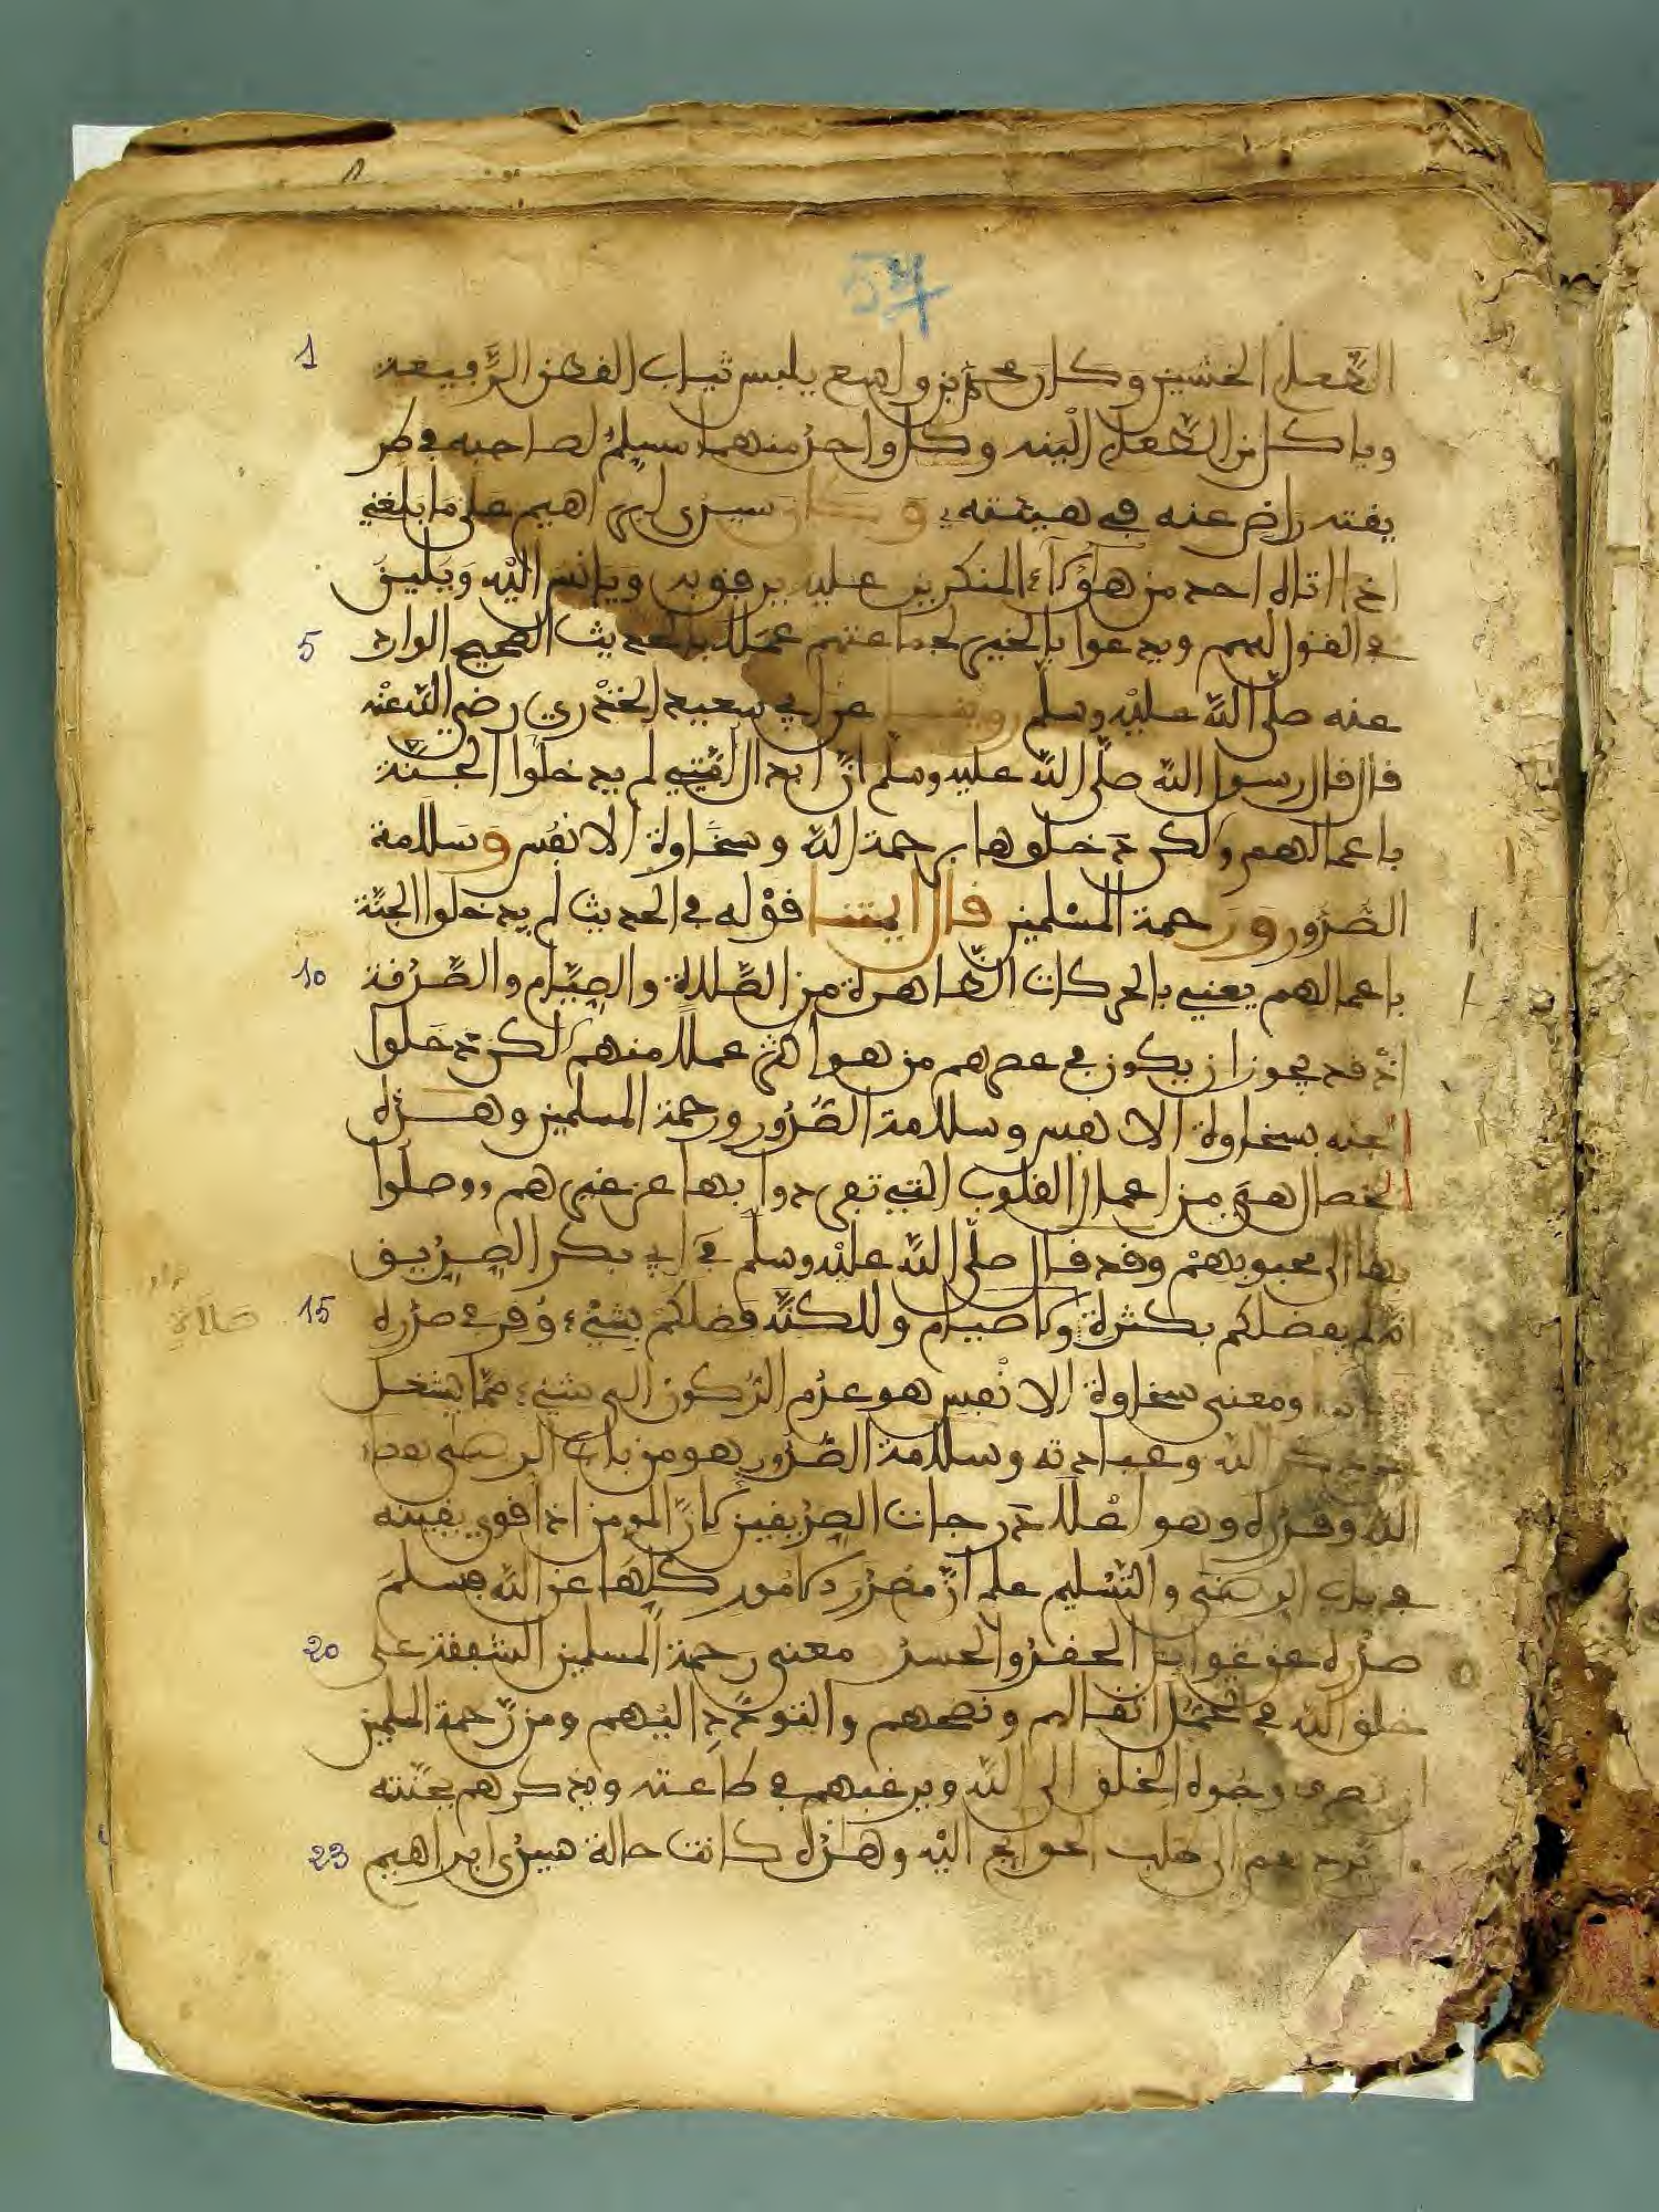 54
1 الطعام الخشين وكان محمد بن واسع يلبس ثياب القطن الرفيعة
وياكل من الطعام الينه وكل واحد منهما مسلم لصاحبه في طر
يقته راض عنه في هيئته وكان سيدي ابراهيم على ما بلغني
اذا اتاه احد من هؤلاء المنكرين عليه يرفق به ويانس اليه ويلين
5 في القول لهم ويدعوا بالخير لجماعتهم عملا بالحديث الصحيح الوارد
عنه صلى الله عليه وسلم روينا عن ابي سعيد الخدري رضي الله عنه
قال قال رسول الله صلى الله عليه وسلم ان ابدال امتي لم يدخلوا الجنة
باعمالهم ولكن دخلوها برحمة الله وسخاوة الانفس وسلامة
الصدور ورحمة المسلمين قال ايمتنا قوله في الحديث لم يدخلوا الجنة
10 باعمالهم يعني بالحركات الظاهرة من الصلاة والصيام والصدقة
اذ قد يجوز ان يكون في عصرهم من هو اكثر عملا منهم لكن دخلوا
الجنة بسخاوة الانفس وسلامة الصدور ورحمة المسلمين وهذه
الخصال هي من اعمال القلوب التي تفردوا بها عن غيرهم ووصلوا
بها الى محبوبهم وقد قال صلى الله عليه وسلم في ابي بكر الصديق
15 انه لم يفضلكم بكثرة ولا صيام ولاكنه فضلكم بشيء وقر في صدره
صلاة
ومعنى سخاوة الانفس هو عدم الركون الى شيء مما يشغل
عن ذكر الله وعبادته وسلامة الصدور هو من باب الرضى بقضاء
الله وقدره وهو اعلا درجات الصديقين لان المومن اذا قوي يقينه
في باب الرضى والتسليم علم ان مصدر الامور كلها عن الله فيسلم
20 صدره عن غوايل الحقد والحسد معنى رحمة المسلمين الشفقة على
خلق الله في تحمل اثقالهم ونصحهم والتودد اليهم ومن رحمة المسلمين
ان يصرف وجوه الخلق الى الله ويرغبهم في طاعته ويذكرهم بجنته
23 طلب الحوايج اليه وهذه كانت حالة سيدي ابراهيم